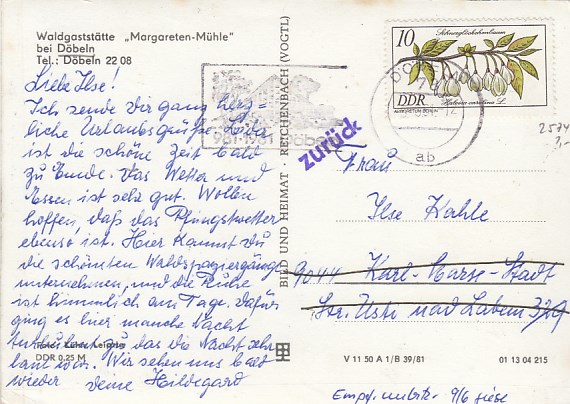 Waldgaststätte „Margareten-Mühle"
bei Döbeln
Tel.: Döbeln 22 08
Liebe Ilse!
Ich sende Dir ganz herz=
liche Urlaubsgrüße. Leider
ist die schöne Zeit bald
zu Ende. Das Wetter und
Essen ist sehr gut. Wollen
hoffen, daß das Pfingstwetter
ebenso ist. Hier kannst du
die schönsten Waldspaziergänge
unternehmen, und die Ruhe
ist himmlich am Tage. Dafür
ging es hier manche Nacht
zu das die Nacht sehr
laut war. Wir sehen uns bald
wieder Deine Hildegard
DDR 0,25 M
BILD UND HEIMAT REICHENBACH (VOGTL)
981-1981 Döbeln
zurück
10
Schneeglöckchenbaum
DDR
Halesia carolina L.
ab
2574
3,-
Frau
Ilse Kahle
9044 Karl-Marx-Stadt
Str. Usti nad Labem 329
V 11 50 A 1/B 39/81
01 13 04 215
9/6